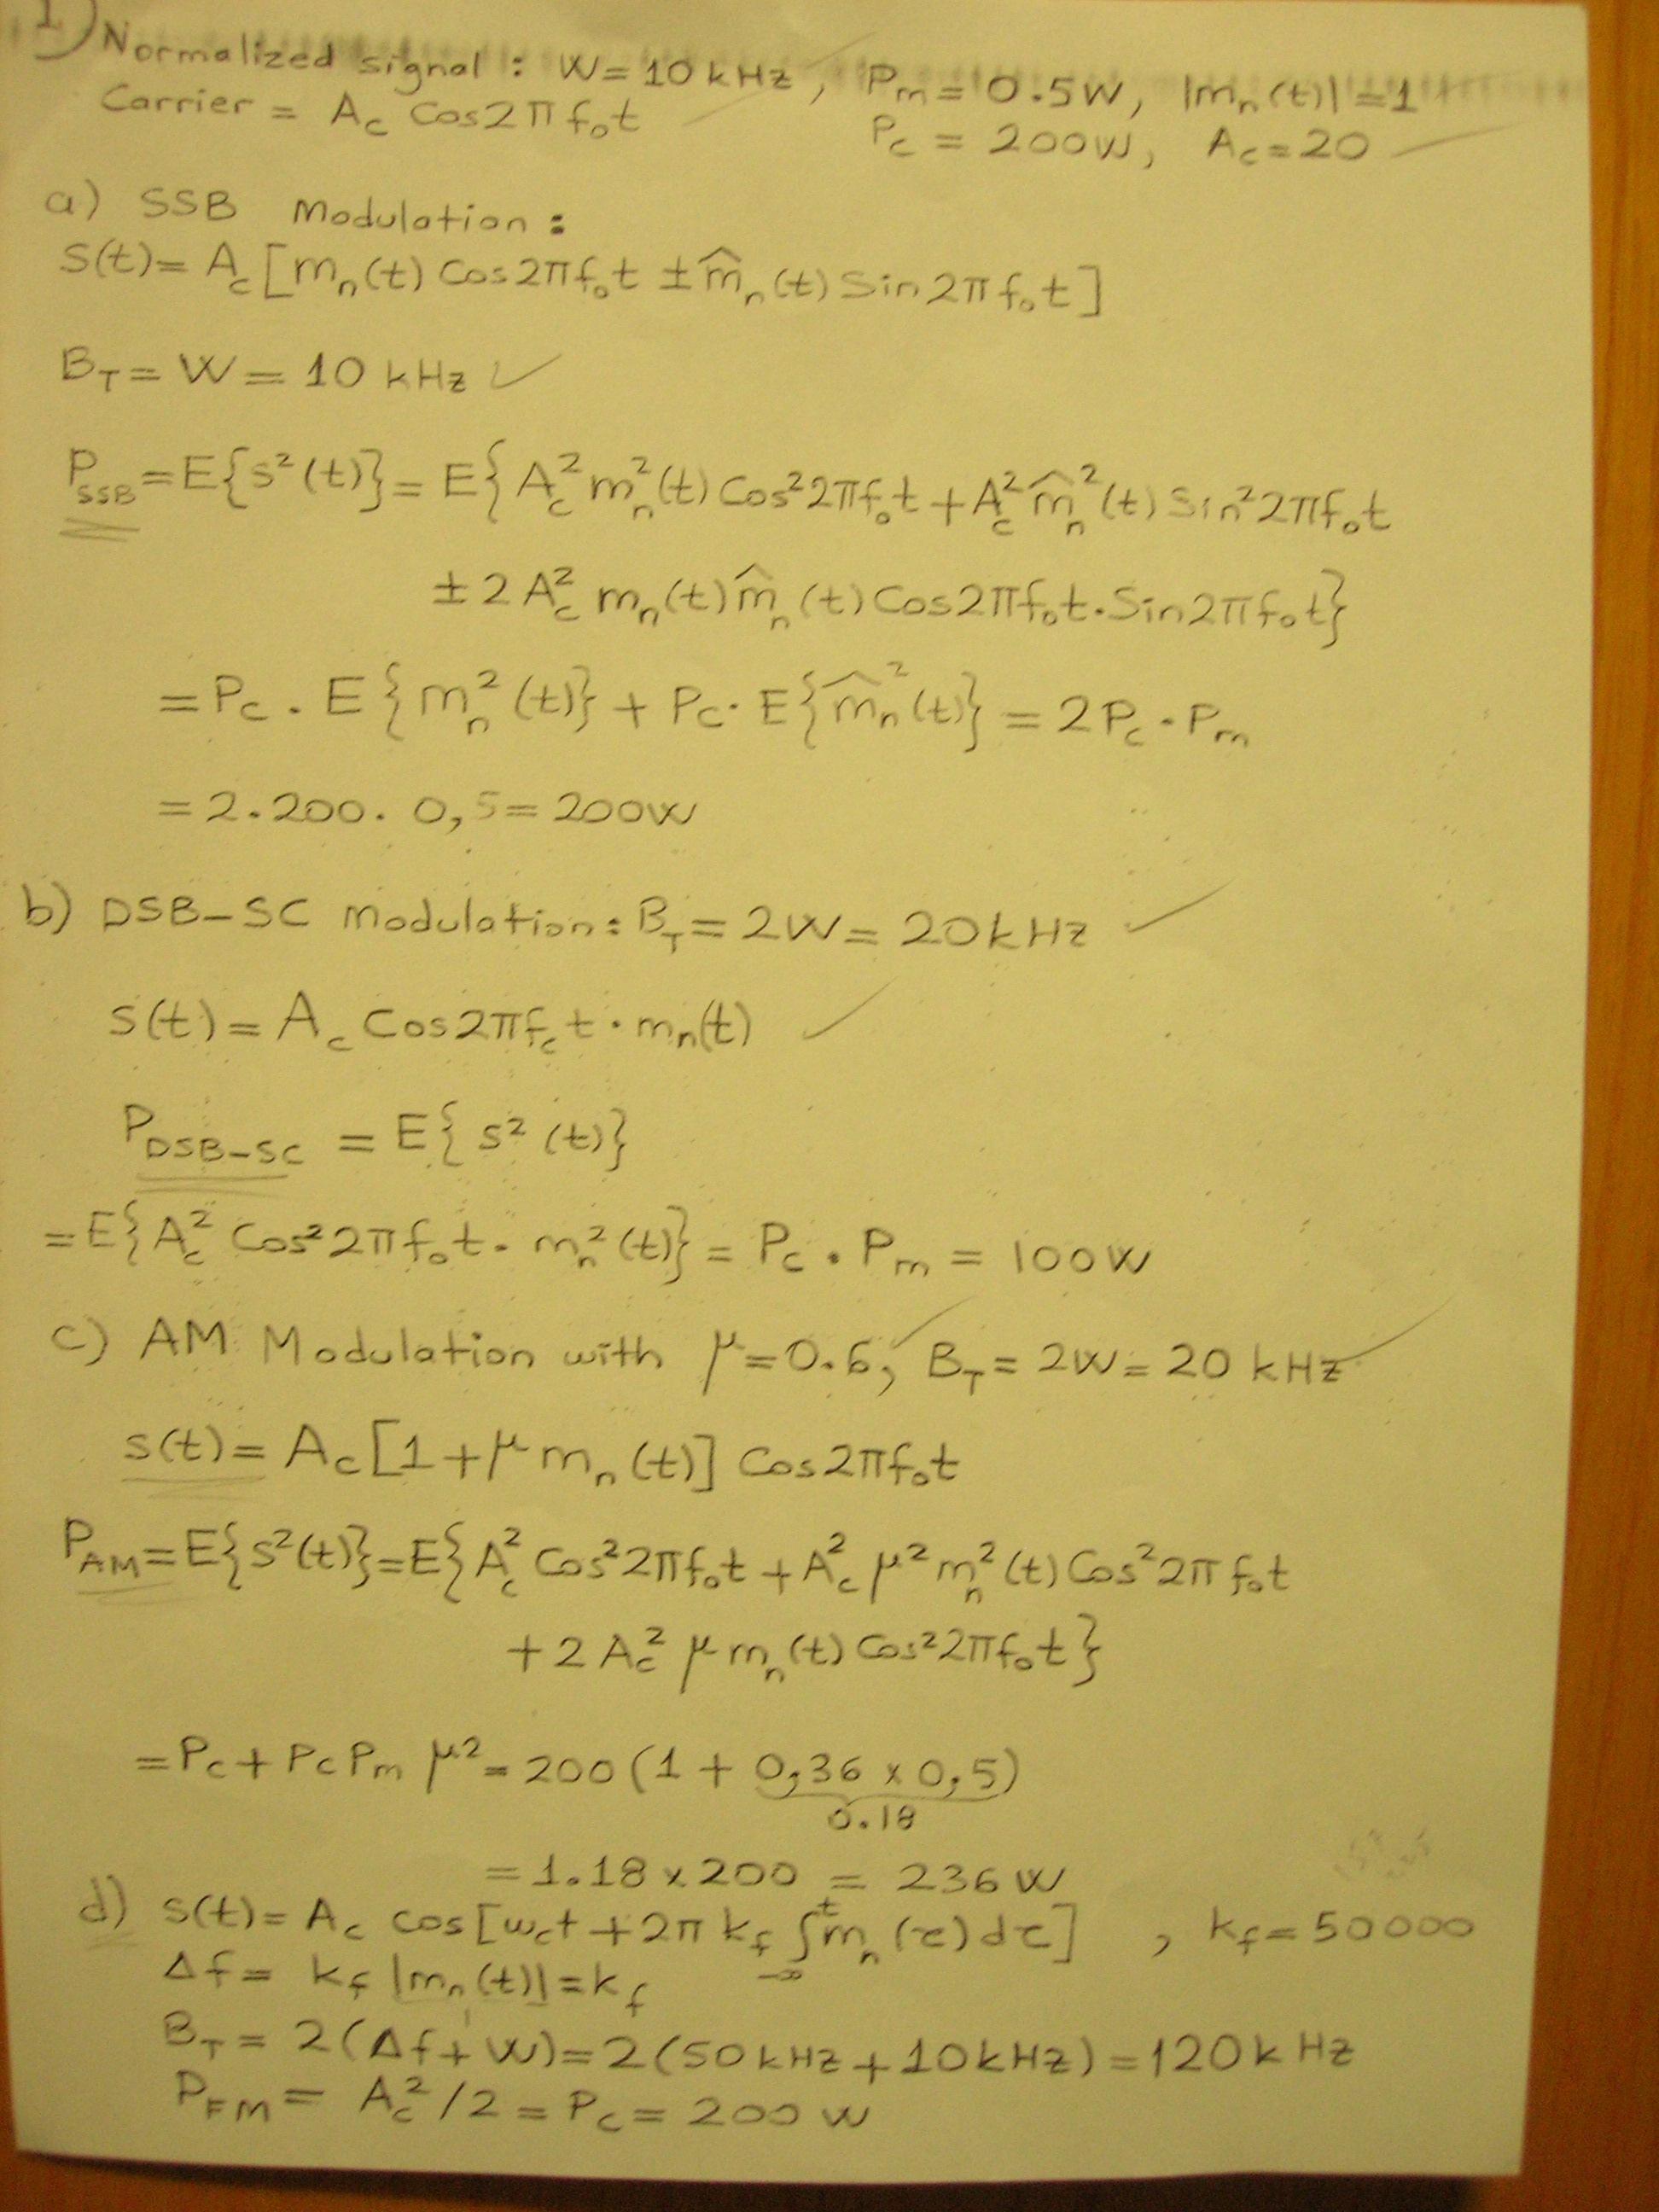 1) Normalized signal : W = 10 kHz , Pm = 0.5W, |mn(t)| = 1
Carrier = Ac Cos2πf₀t Pc = 200W, Ac = 20
a) SSB Modulation :
S(t) = Ac [mn(t) Cos2πf₀t ± m̂n(t) Sin2πf₀t]
BT = W = 10 kHz ✓
PSSB = E{s²(t)} = E{Ac² mn²(t) Cos²2πf₀t + Ac² m̂n²(t) Sin²2πf₀t
± 2Ac² mn(t) m̂n(t) Cos2πf₀t . Sin2πf₀t}
= Pc . E{mn²(t)} + Pc . E{m̂n²(t)} = 2Pc . Pm
= 2 . 200 . 0,5 = 200W
b) DSB-SC Modulation : BT = 2W = 20kHz
s(t) = Ac Cos2πfct . mn(t)
PDSB-SC = E{s²(t)}
= E{Ac² Cos²2πf₀t . mn²(t)} = Pc . Pm = 100W
c) AM Modulation with μ = 0.6, BT = 2W = 20 kHz
s(t) = Ac [1 + μ mn(t)] Cos2πf₀t
PAM = E{s²(t)} = E{Ac² Cos²2πf₀t + Ac² μ² mn²(t) Cos²2πf₀t
+ 2Ac² μ mn(t) Cos²2πf₀t}
= Pc + PcPm μ² = 200(1 + 0,36 x 0,5)
0.18
= 1.18 x 200 = 236 W
d) s(t) = Ac cos[wct + 2π kf ∫₋∞ᵗ mn(τ)dτ] , kf = 50000
Δf = kf |mn(t)| = kf
BT = 2(Δf + W) = 2(50kHz + 10kHz) = 120kHz
PFM = Ac²/2 = Pc = 200 W